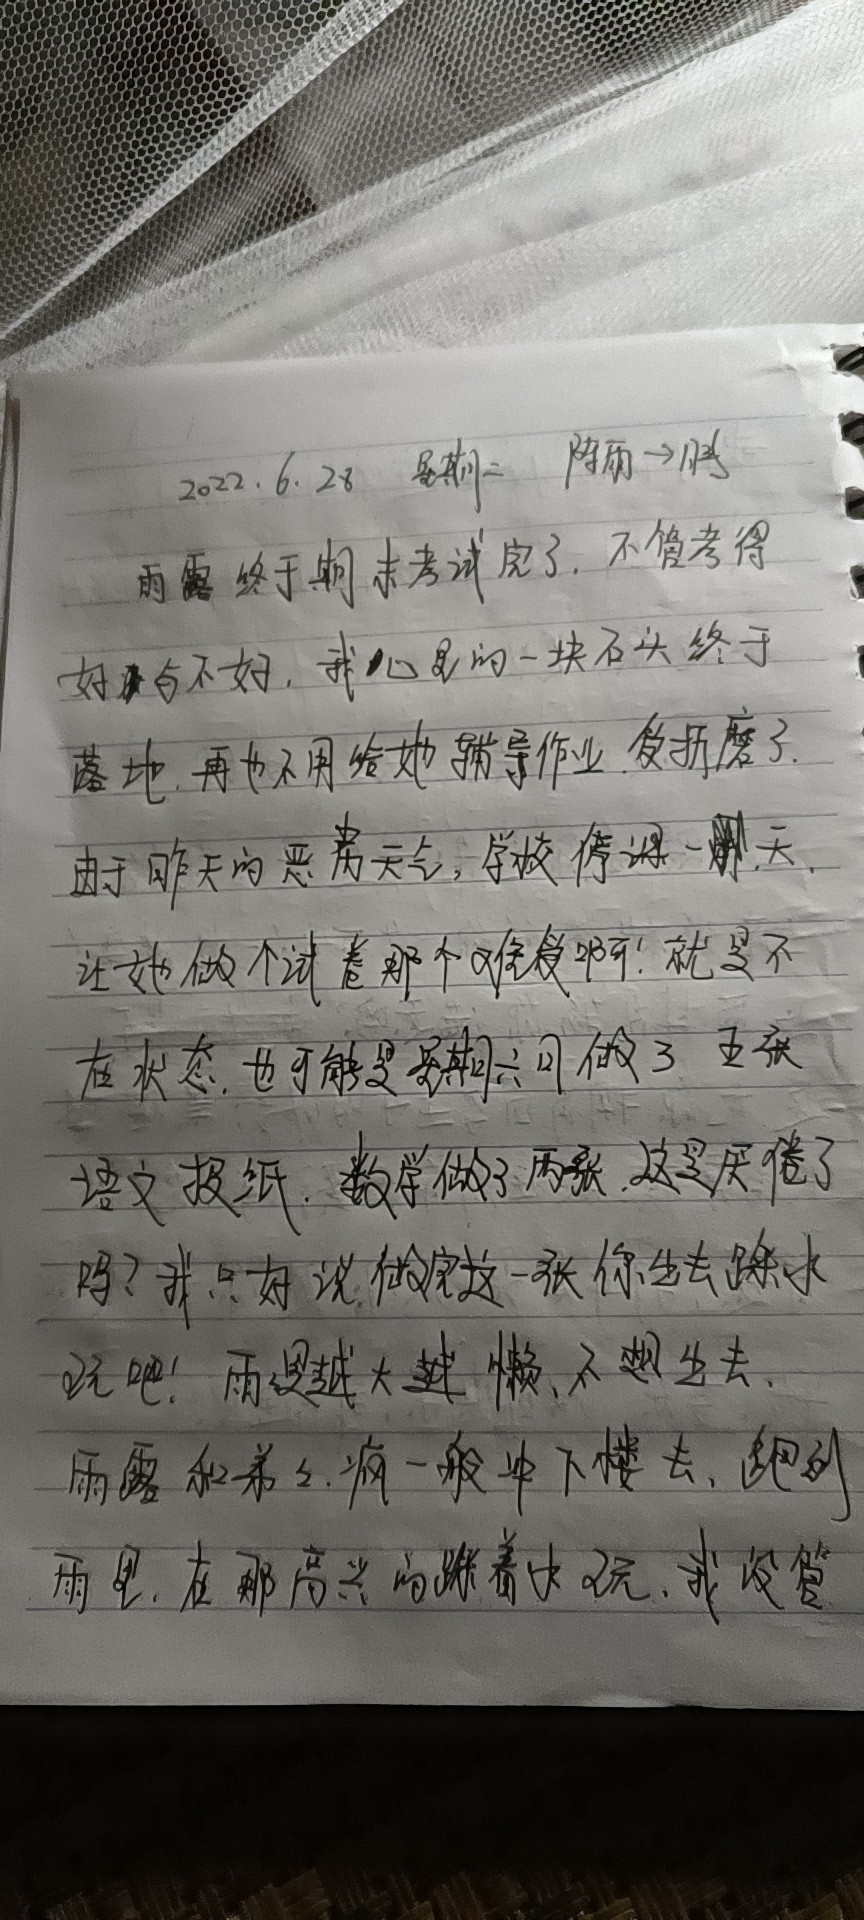 2022.6.28 星期二 阵雨→晴
雨露终于期末考试完了.不管考得
好与不好,我心里的一块石头终于
落地,再也不用给她辅导作业受折磨了.
由于昨天的恶劣天气,学校停课一天,
让她做个试卷那个难受啊!就是不
在状态,也可能是星期六日做了五张
语文报纸,数学做了两张,这是厌倦了
吗?我只好说,做完这一张你出去踩水
玩吧!雨是越大越懒,不想出去,
雨露和弟弟疯一般冲下楼去,跑到
雨里,在那高兴的踩着水玩,我没管